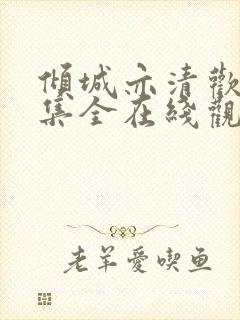 傾城亦清歡
集全在綫觀
老羊愛喫鱼